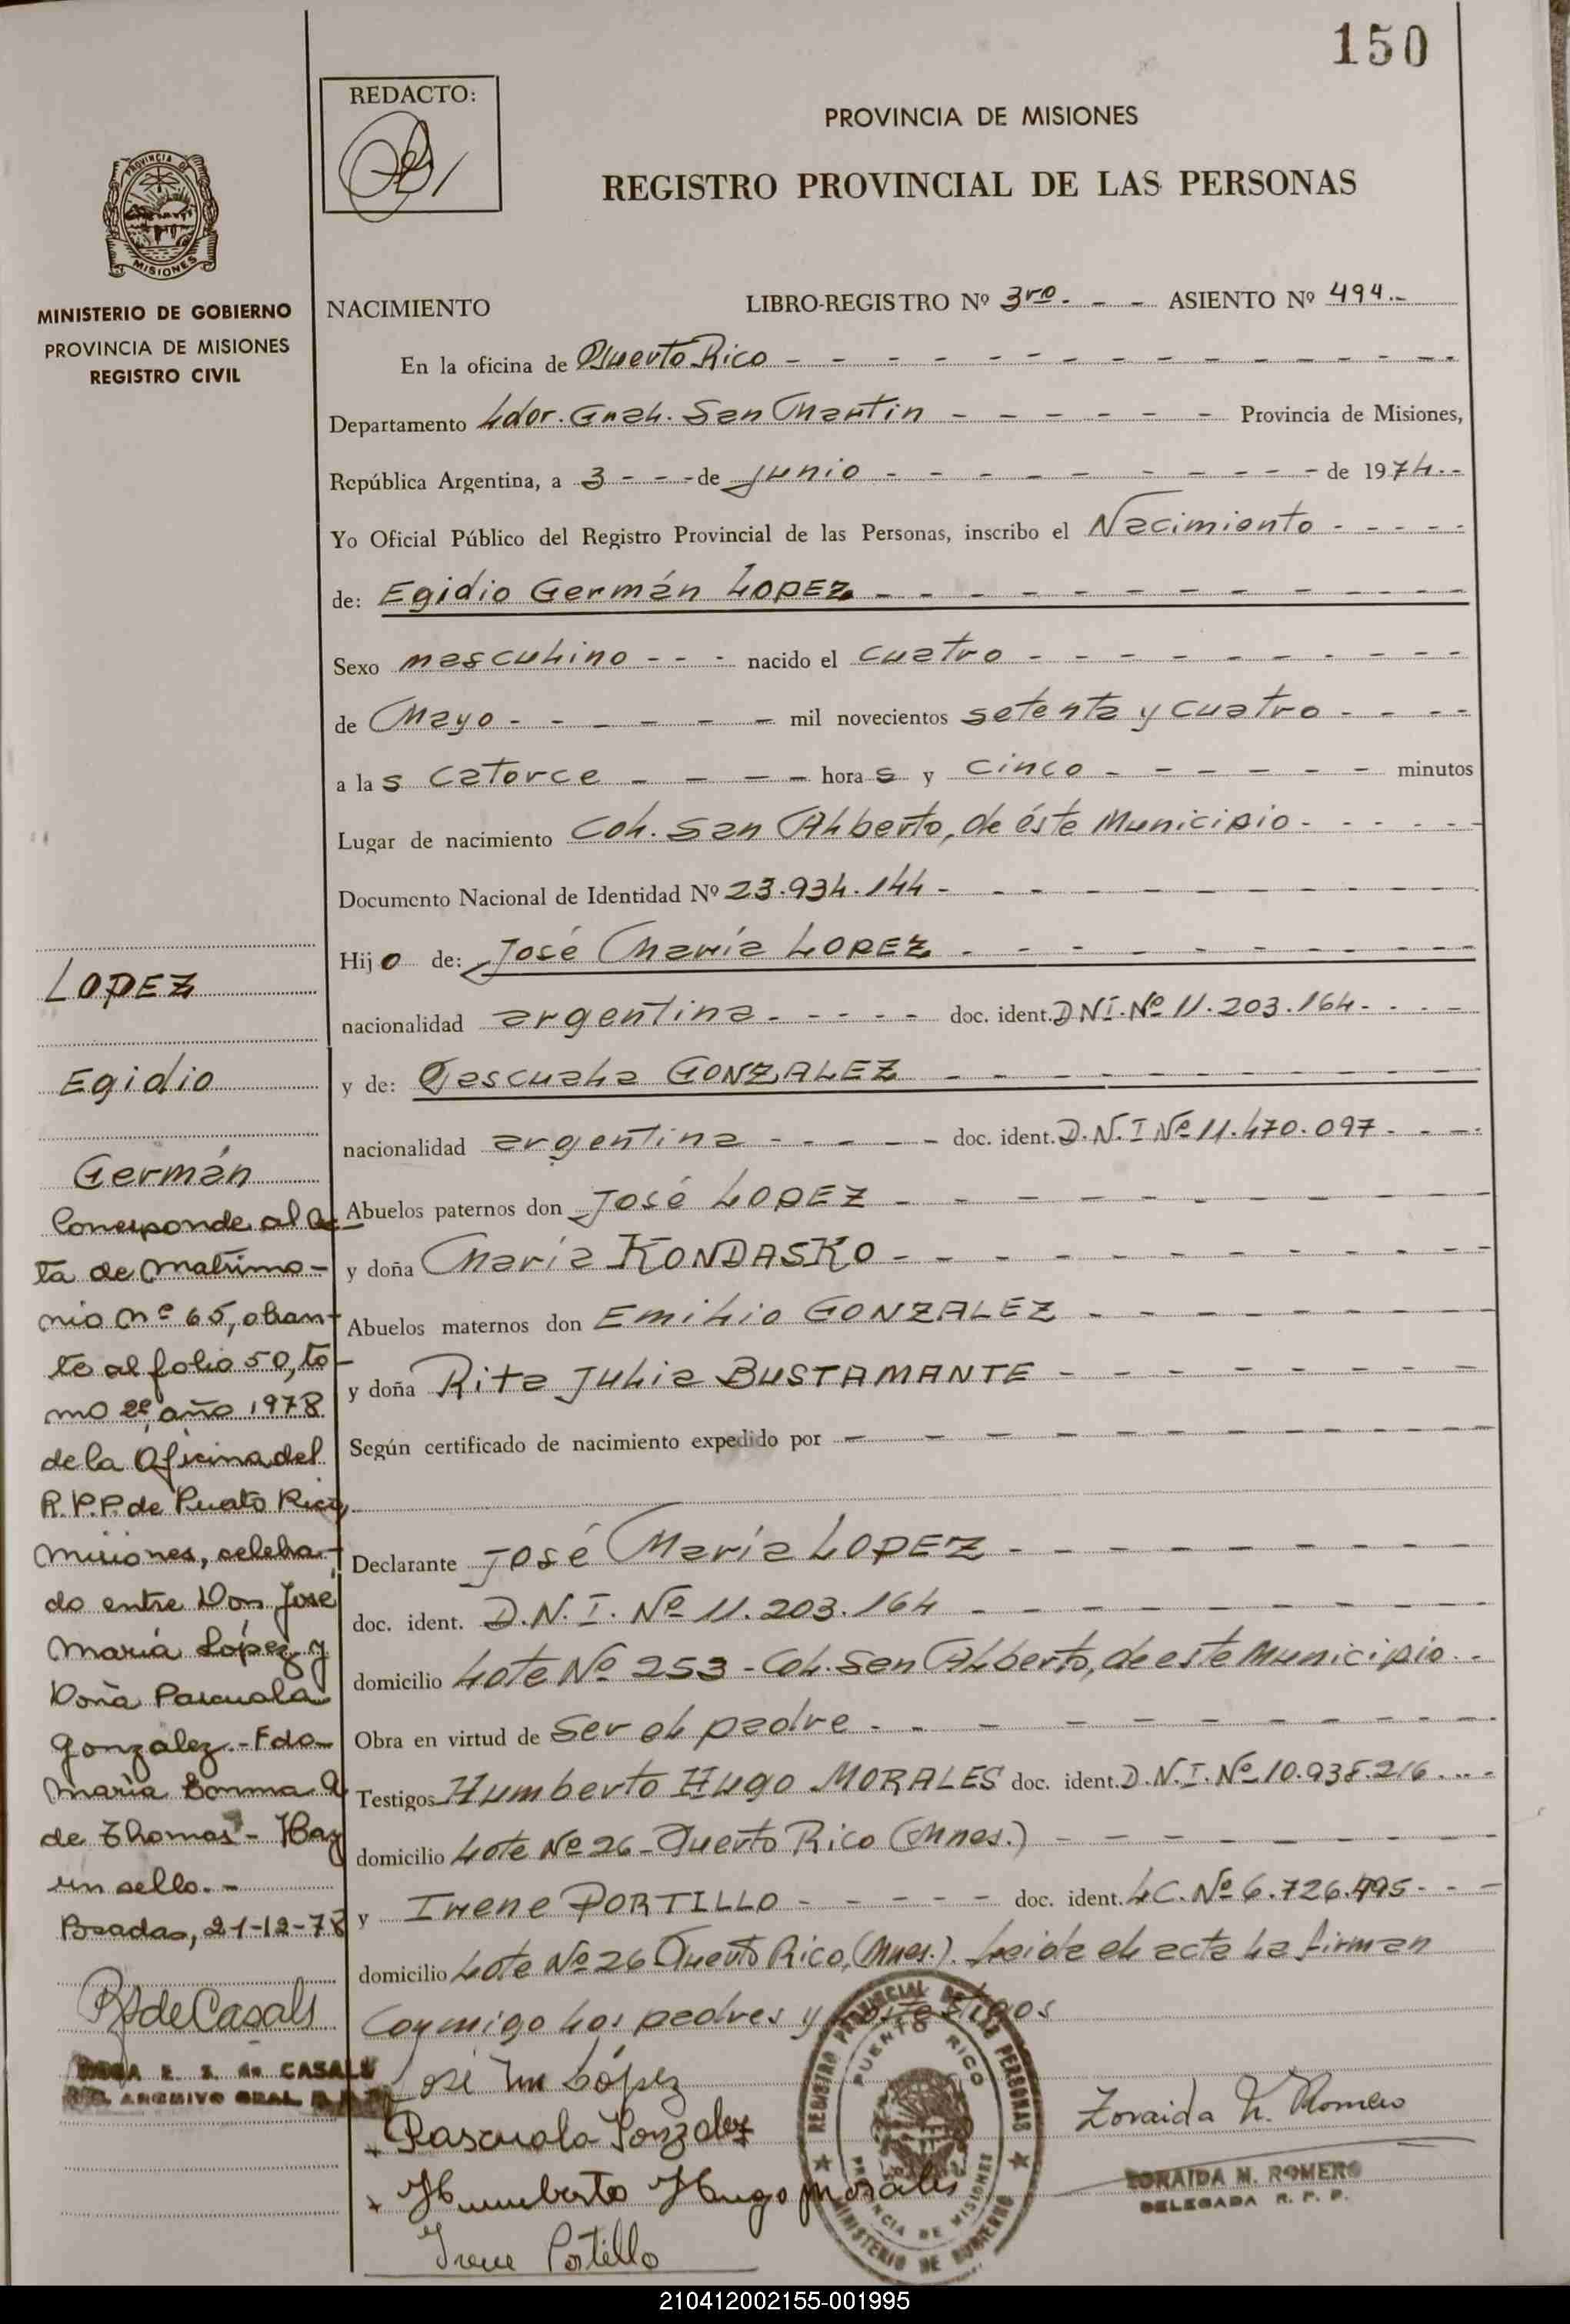 150
REDACTO:
PROVINCIA DE MISIONES
REGISTRO PROVINCIAL DE LAS PERSONAS
PROVINCIA DE
MISIONES
MINISTERIO DE GOBIERNO
PROVINCIA DE MISIONES
REGISTRO CIVIL
NACIMIENTO LIBRO-REGISTRO Nº 3ro. - - - ASIENTO Nº 494.-
En la oficina de Puerto Rico
Departamento Ldor. Gral. San Martin Provincia de Misiones,
República Argentina, a 3 - - - de junio de 1974.-
Yo Oficial Público del Registro Provincial de las Personas, inscribo el Nacimiento
de: Egidio Germán LOPEZ
Sexo masculino - - - nacido el cuatro
de Mayo mil novecientos setenta y cuatro
a las catorce horas y cinco minutos
Lugar de nacimiento Col. San Alberto, de éste Municipio
Documento Nacional de Identidad Nº 23.934.144
Hijo de: José María LOPEZ
nacionalidad argentina doc. ident. DNI. Nº 11.203.164
y de: Pascuala GONZALEZ
nacionalidad argentina doc. ident. D.N.I Nº 11.470.097
Abuelos paternos don José LOPEZ
y doña María KONDASKO
Abuelos maternos don Emilio GONZALEZ
y doña Rita Julia BUSTAMANTE
Según certificado de nacimiento expedido por
Declarante José María LOPEZ
doc. ident. D.N.I. Nº 11.203.164
domicilio Lote Nº 253 - Col. San Alberto, de este Municipio.-
Obra en virtud de ser el padre
Testigos Humberto Hugo MORALES doc. ident. D.N.I. Nº 10.938.216
domicilio Lote Nº 26 - Puerto Rico (Mnes.)
y Irene PORTILLO doc. ident. LC. Nº 6.726.495
domicilio Lote Nº 26 Puerto Rico, (Mnes.). Leida el acta la firman
conmigo los padres y los testigos
LOPEZ
Egidio
Germán
Corresponde al Ac-
ta de Matrimo-
nio Nº 65, obran-
te al folio 50, to-
mo 2º, año 1978
de la Oficina del
R.P.P. de Puerto Rico,
Misiones, celebra-
do entre Don José
María López y
Doña Pascuala
González.- Fdo-
María Bonma
de Thomas - Hay
un sello.-
Posadas, 21-12-78
R de Casals
E. S. de CASALS
ARCHIVO GRAL.
José M López
Pascuala Gonzalez
Humberto Hugo Morales
Irene Portillo
REGISTRO PROVINCIAL DE LAS PERSONAS
PUERTO RICO
PROVINCIA DE MISIONES
MINISTERIO DE GOBIERNO
Zoraida M. Romero
ZORAIDA M. ROMERO
DELEGADA R. P. P.
210412002155-001995